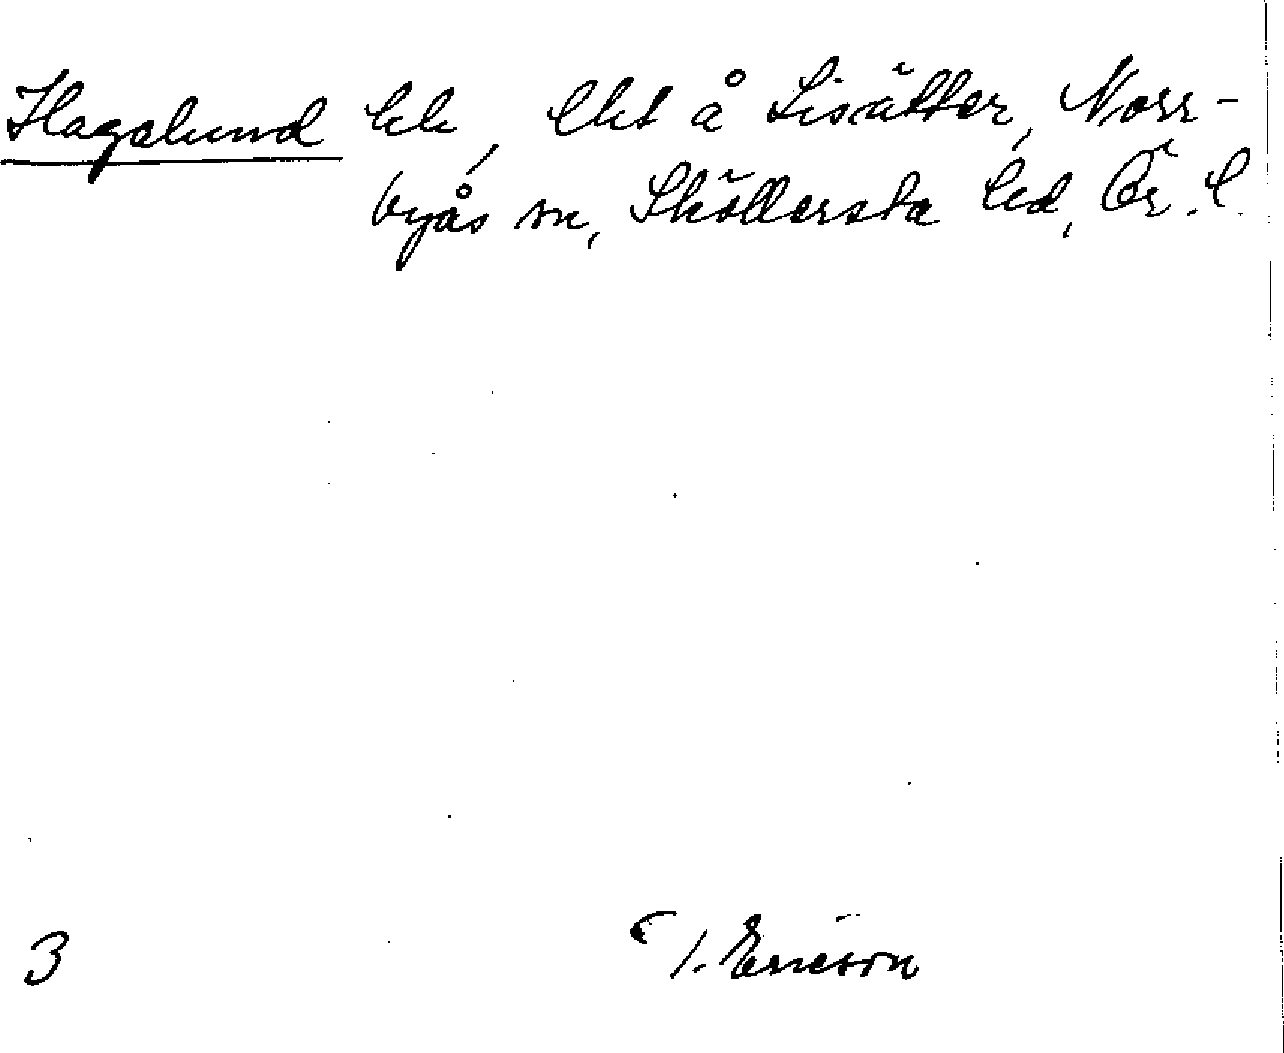 Hagalund lde, lht å Lisätter, Norr-
byås sn, Sköllersta hd, Ör. l.
3
T. Ericson